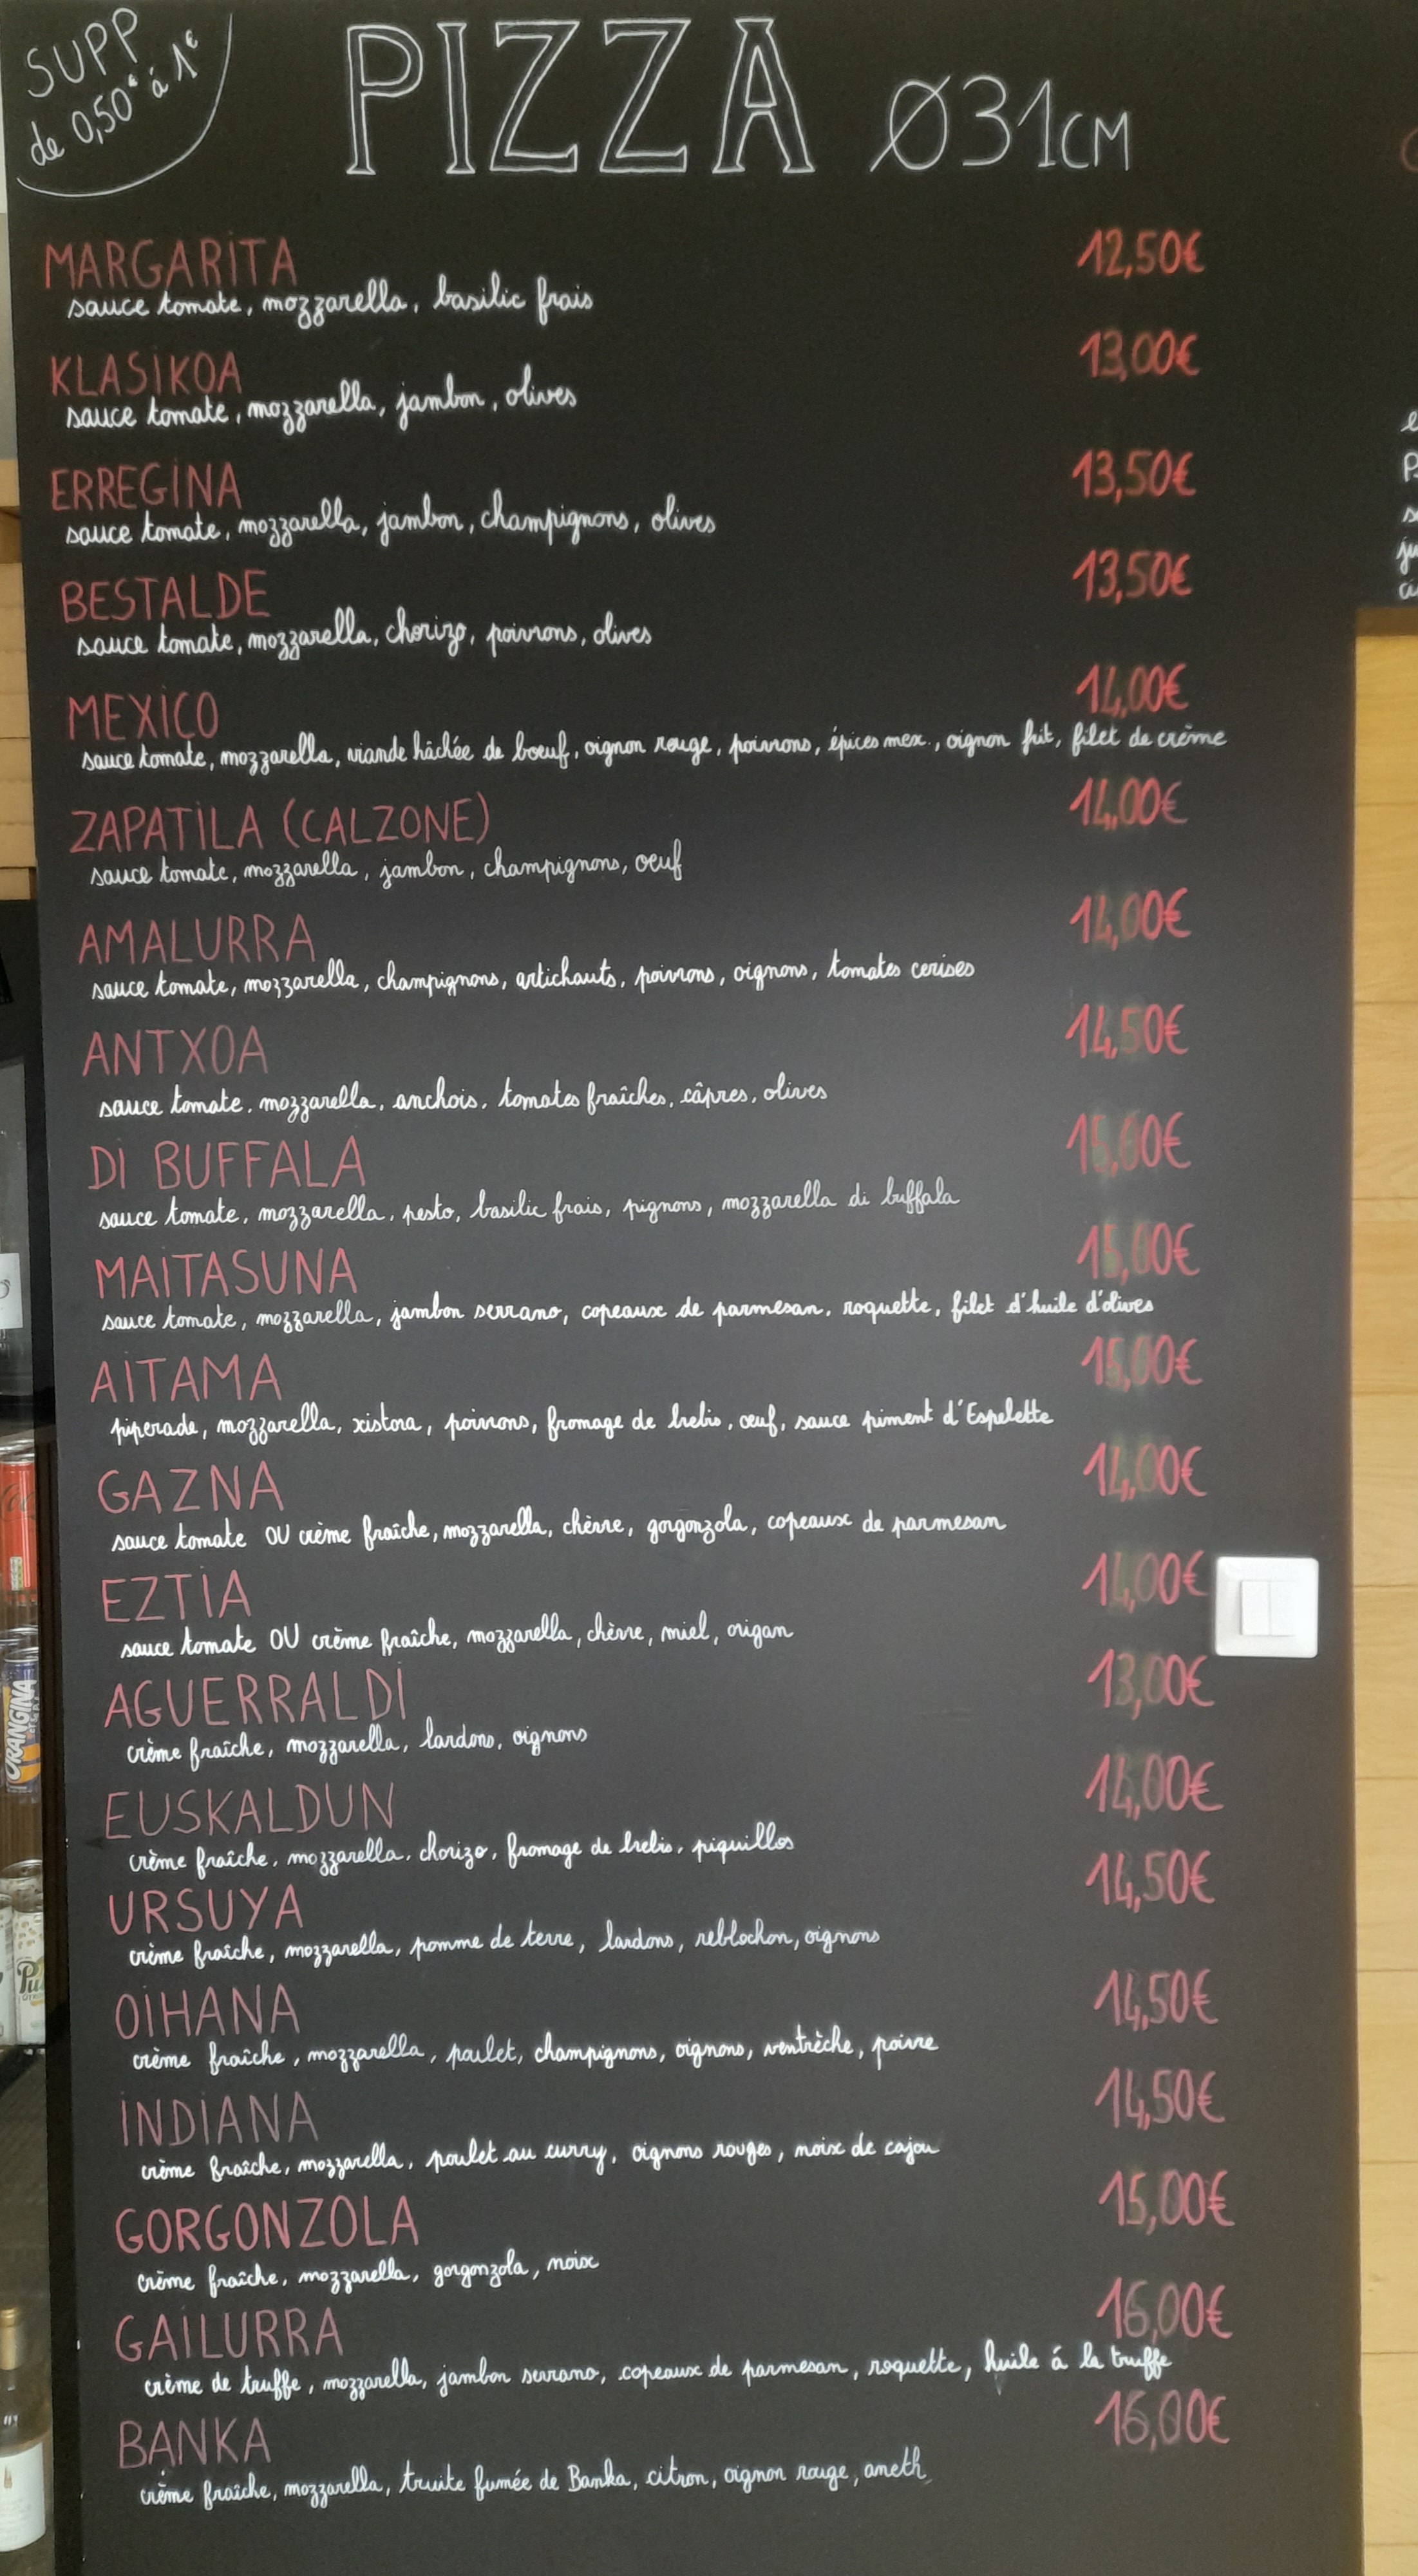 SUPP
de 0,50€ à 1€
PIZZA Ø31CM
MARGARITA 12,50€
sauce tomate, mozzarella, basilic frais
KLASIKOA 13,00€
sauce tomate, mozzarella, jambon, olives
ERREGINA 13,50€
sauce tomate, mozzarella, jambon, champignons, olives
BESTALDE 13,50€
sauce tomate, mozzarella, chorizo, poivrons, olives
MEXICO 14,00€
sauce tomate, mozzarella, viande hâchée de boeuf, oignon rouge, poivrons, épices mex., oignon frit, filet de crème
ZAPATILA (CALZONE) 14,00€
sauce tomate, mozzarella, jambon, champignons, oeuf
AMALURRA 14,00€
sauce tomate, mozzarella, champignons, artichauts, poivrons, oignons, tomates cerises
ANTXOA 14,50€
sauce tomate, mozzarella, anchois, tomates fraîches, câpres, olives
DI BUFFALA 15,00€
sauce tomate, mozzarella, pesto, basilic frais, pignons, mozzarella di buffala
MAITASUNA 15,00€
sauce tomate, mozzarella, jambon serrano, copeaux de parmesan, roquette, filet d'huile d'olives
AITAMA 15,00€
piperade, mozzarella, xistora, poivrons, fromage de brebis, oeuf, sauce piment d'Espelette
GAZNA 14,00€
sauce tomate OU crème fraîche, mozzarella, chèvre, gorgonzola, copeaux de parmesan
EZTIA 14,00€
sauce tomate OU crème fraîche, mozzarella, chèvre, miel, origan
AGUERRALDI 13,00€
crème fraîche, mozzarella, lardons, oignons
EUSKALDUN 14,00€
crème fraîche, mozzarella, chorizo, fromage de brebis, piquillos
URSUYA 14,50€
crème fraîche, mozzarella, pomme de terre, lardons, reblochon, oignons
OIHANA 14,50€
crème fraîche, mozzarella, poulet, champignons, oignons, ventrèche, poivre
INDIANA 14,50€
crème fraîche, mozzarella, poulet au curry, oignons rouges, noix de cajou
GORGONZOLA 15,00€
crème fraîche, mozzarella, gorgonzola, noix
GAILURRA 16,00€
crème de truffe, mozzarella, jambon serrano, copeaux de parmesan, roquette, huile à la truffe
BANKA 16,00€
crème fraîche, mozzarella, truite fumée de Banka, citron, oignon rouge, aneth
ORANGINA